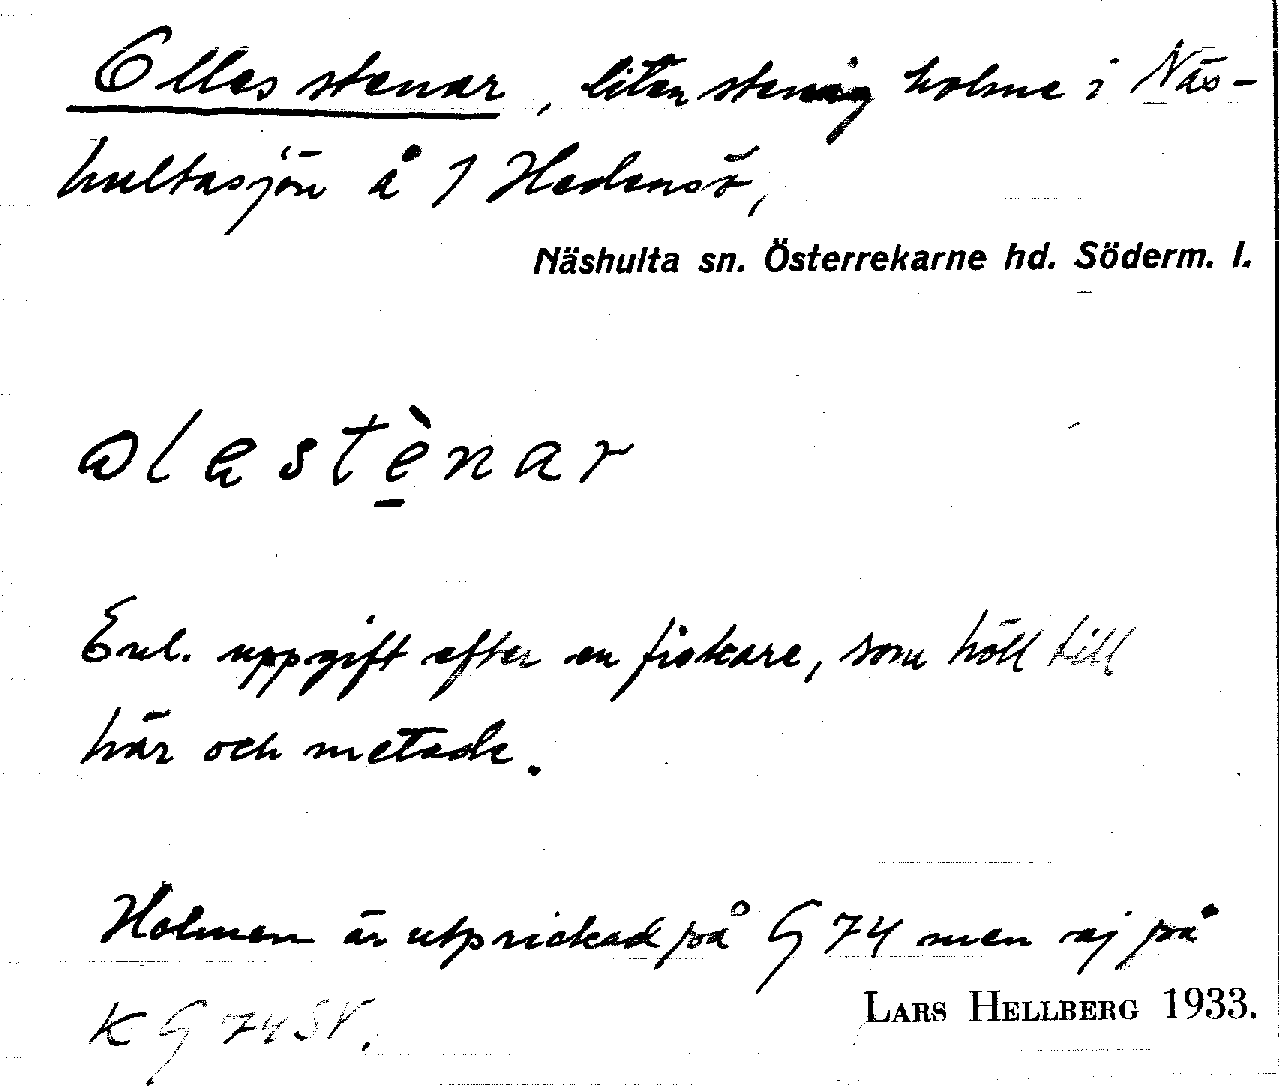 Olles stenar, liten stenig holme i Näs-
hultasjön å 1 Hedensö,
Näshulta sn. Österrekarne hd. Söderm. l.
ɷlestènar
Enl. uppgift efter en fiskare, som höll till
här och metade.
Holmen är utprickad på G 74 men ej på
K G 74 SV.
LARS HELLBERG 1933.